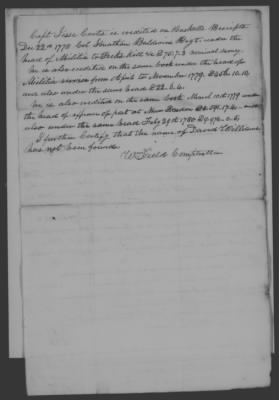 Capt Jesse Curtis is credited on Haskells Receipts
Dec 22nd 1778 Col Jonathan Baldwins Regt. under the
head of Militia to Peeks Kill &c £70.7.3 nominal money.
He is also credited on the same book under the head of
Militia service from April to November 1779.
and also under the same head £22.6.4.
He is also credited on the same book March 10th 1779 under
the head of officers of part at New Haven
also under the same head Feby 29th 1780
I further Certify that the name of David Williams
has not been found.
Wm Field Comptroller